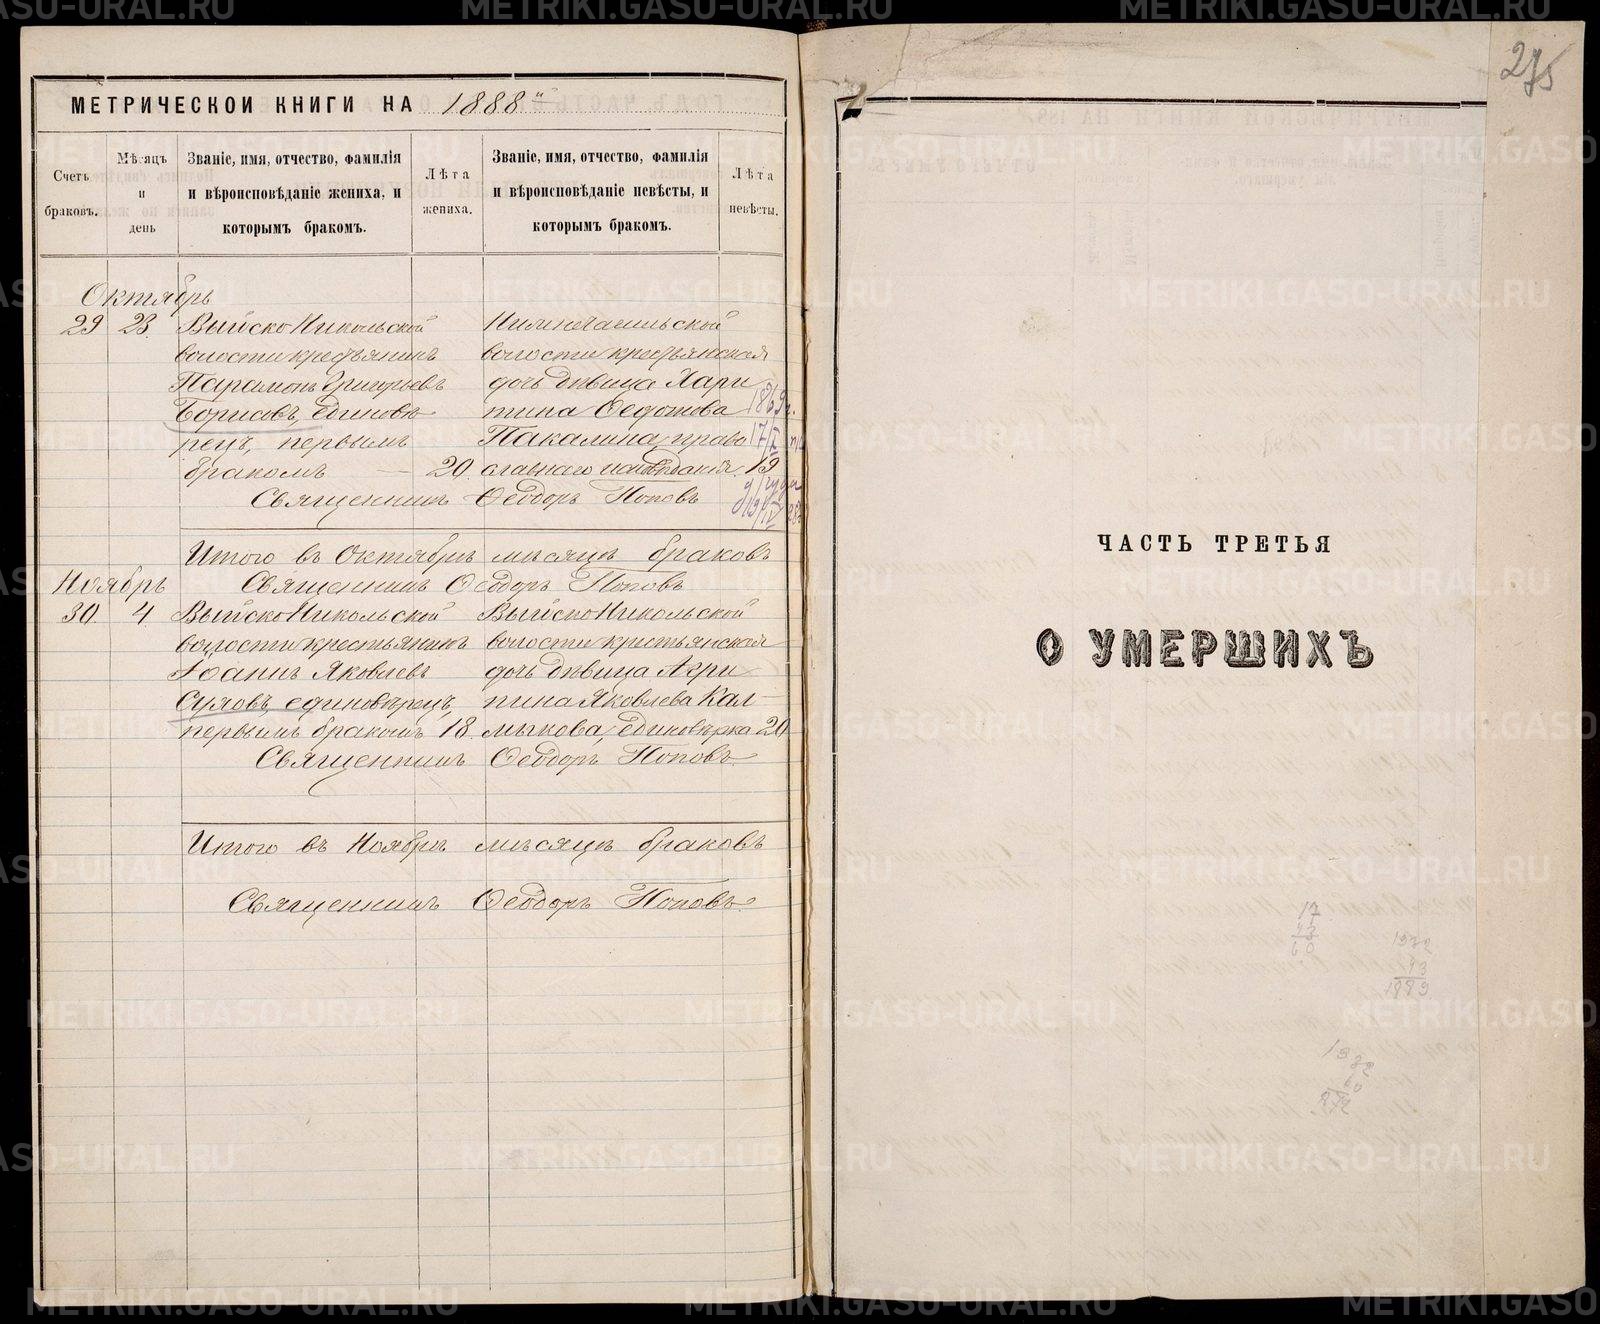 МЕТРИЧЕСКОЙ КНИГИ НА 1888й
Счетъ браковъ.
Мѣсяцъ и день
Званіе, имя, отчество, фамилія
и вѣроисповѣданіе жениха, и
которымъ бракомъ.
Лѣта
жениха.
Званіе, имя, отчество, фамилія
и вѣроисповѣданіе невѣсты, и
которымъ бракомъ.
Лѣта
невѣсты.
Октябрь
29 23 Выйско Никольской
волости крестьянинъ
Парамонъ Григорьевъ
Борисовъ, единовѣ-
рецъ, первымъ
бракомъ — 20
Нижнетагильской
волости крестьянская
дочь дѣвица Хари
тина Федотова
Пакалина, право
славнаго исповѣданія 19
1869 г.
17/X
19/IX
Священникъ Ѳеодоръ Поповъ
Итого въ Октябрѣ мѣсяцѣ браковъ
Священникъ Ѳеодоръ Поповъ
Ноябрь
30 4 Выйско Никольской
волости крестьянинъ
Іоаннъ Яковлевъ
Суловъ, единовѣрецъ,
первымъ бракомъ 18
Выйско Никольской
волости крестьянская
дочь дѣвица Агри
пина Яковлева Кал-
мыкова, единовѣрка 20
Священникъ Ѳеодоръ Поповъ
Итого въ Ноябрѣ мѣсяцѣ браковъ
Священникъ Ѳеодоръ Поповъ
275
ЧАСТЬ ТРЕТЬЯ
О УМЕРШИХЪ
17
43
60
1932
43
1889
1932
60
1872
METRIKI.GASO-URAL.RU